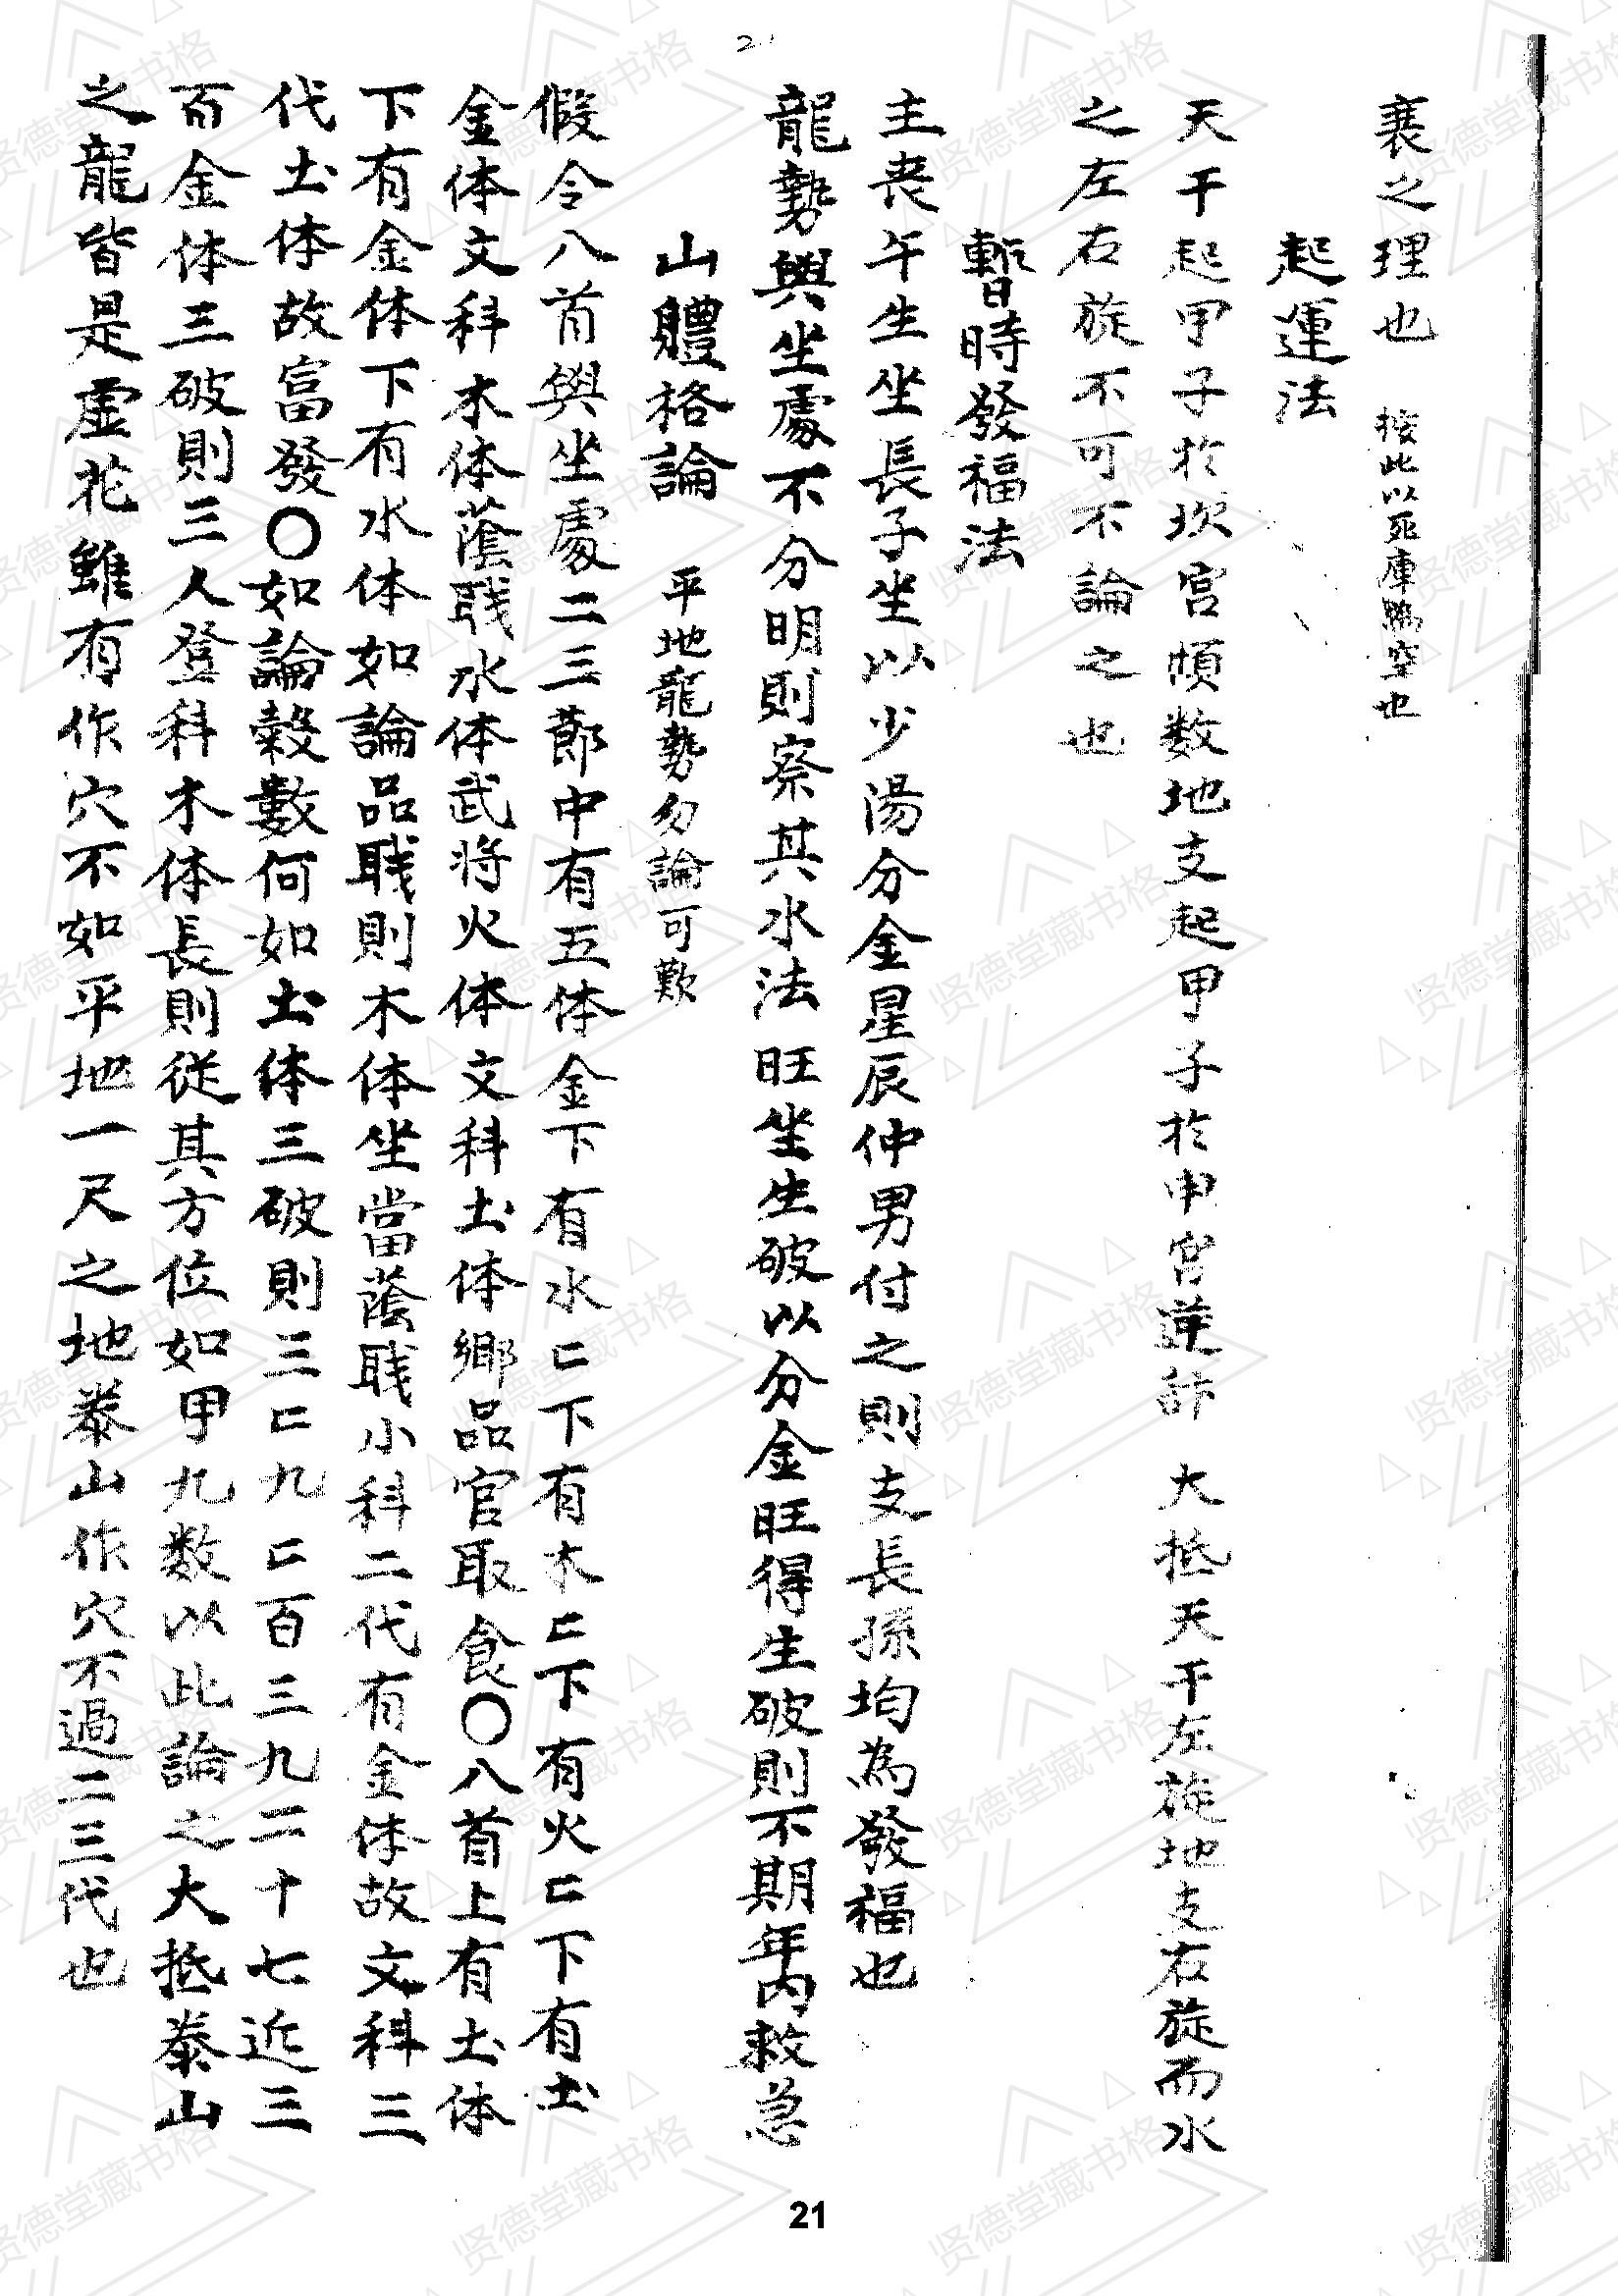 衰之理也 按此以死庫為空也
起運法
天干起甲子於坎宮順数地支起甲子於申宮逆計 大抵天干左旋地支右旋而水
之左右旋不可不論之也
暫時發福法
主丧午生坐長子坐以少湯分金星辰仲男付之則支長孫均為發福也
龍勢與坐處不分明則察其水法旺坐生破以分金旺得生破則不期年內救急
山體格論 平地龍勢勿論可歎
假令八首與坐處二三節中有五体金下有水匚下有木匚下有火匚下有土
金体文科木体蔭職水体武将火体文科土体鄉品官取食〇八首上有土体
下有金体下有水体如論品職則木体坐當蔭職小科二代有金体故文科三
代土体故富發〇如論穀數何如土体三破則三匚九匚百三九二十七近三
百金体三破則三人登科木体長則從其方位如甲九数以此論之大抵泰山
之龍皆是虛花雖有作穴不如平地一尺之地泰山作穴不過二三代也
21
贤德堂藏书格